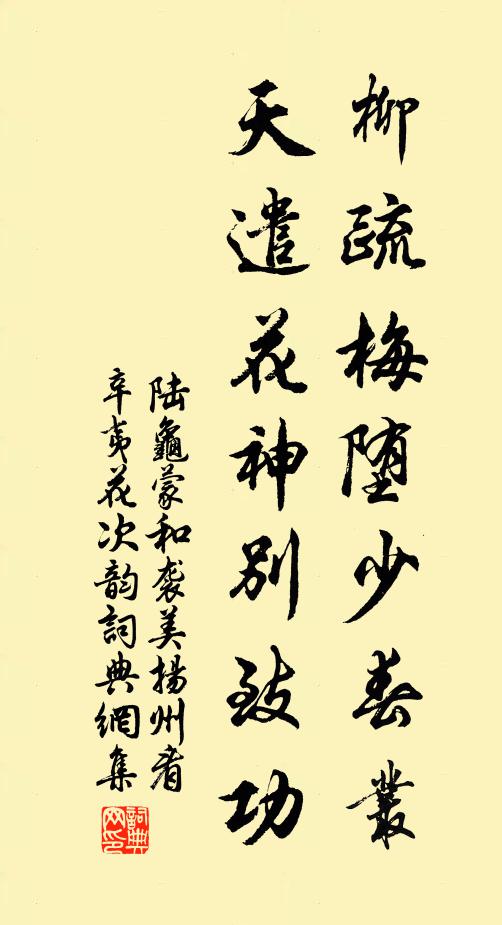 柳疏梅堕少春叢
天遣花神别致功
陆龜蒙和袭美揚州看
辛夷花次韵詞典網集
詞典网印